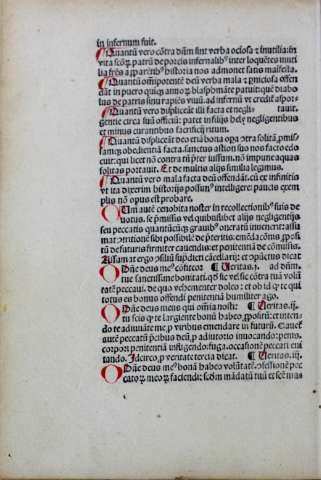 in infernum fuit.
Quantū vero cōtra dūm sint verba ociosa ⁊ inutilia: in
vita scōꝝ patrū de porcis infernalibꝰ inter loquētes inuti
lia frēs apparentibꝰ historia nos admonet satis maifesta.
Quantū oīpotentē deū verba mala ⁊ pniciosa offen
dāt in puero quinq; annoꝝ blasphēmāte patuit: quē diabo
lus de patris sinu rapiēs viuū. ad infernū vt credit̄ aspor-
Quantū displiceāt illi facta et negli- tauit.
gentie circa suū officiū: patet in filijs hely negligentibus
et minus curantibꝰ sacrificij ritum.
Quantū displiceāt deo etiā bona opa ꝯtra solitā pmis-
samq; obedientiā facta: sanctus ... suo nos facto edo
cuit: qui licet nō contra tn̄ preter iussum: nō impune aquas
solitas portauit. Et de multis alijs similia legimus.
Quantū vero mala facta deū offendāt: cū ex infinitis
vt ita dixerim historijs possimꝰ intelligere: paucis exem
plis nō opus est probare.
Cum autē cenobita noster in recollectionibꝰ suis de
uotus, se pmissis vel quibuslibet alijs negligentijs
seu peccatis quantūcūq; grauibꝰ oneratū inuenerit:
mat ꝯtritione sibi possibile de pteritis: emēdā cōmis,
tū de futuris firmiter cauendis: et penitentiā de cōmissis.
Ad summum supplici
One deus meus ꝯfiteorꝫ ¶ Ueritas.i. ad dūm.
tue sanctissime bonitati. qꝫ sic vel sic cōtra tuā volū
tatē peccaui. de quo vehementer doleo: et ob id ꝙ te qui
totus es bonus offendi penitentiā humiliter ago.
One deus meus qui omnia nosti: ¶ Ueritas.ij.
tu scis ꝙ te largiente bonū habeo ppositū: et inten-
to te adiuuāte me p viribus emendare in futurū. Cauebo
autē peccatis pōbus deū p adiutorio inuocando: penas
corpori penitentiā infligendo: fuga, occasionē peccati eui
tando. Idcirco p veritate tercia dicat. ¶ Ueritas.iij.
One deus meus bonā habeo volūtatē ꝯfessionē pec
catoꝝ meoꝝ faciendi: scdm mādatū tuū et scē mat